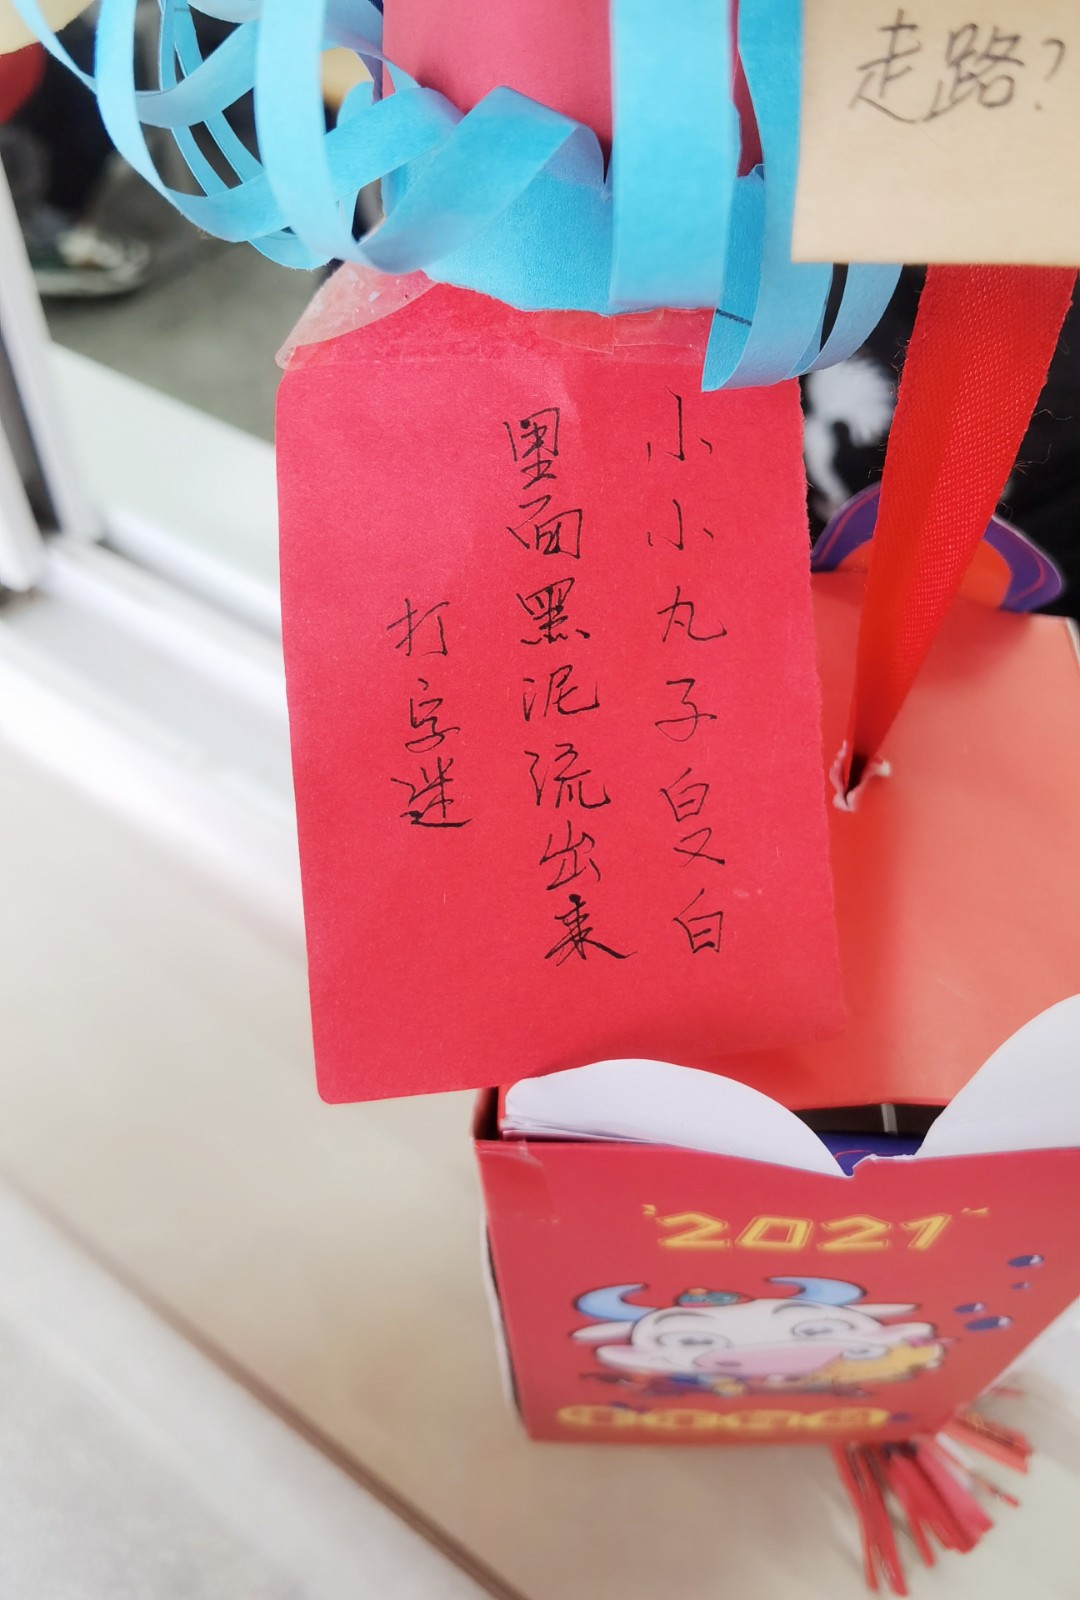 走路?
小小丸子白又白
里面黑泥流出来
打字迷
2021